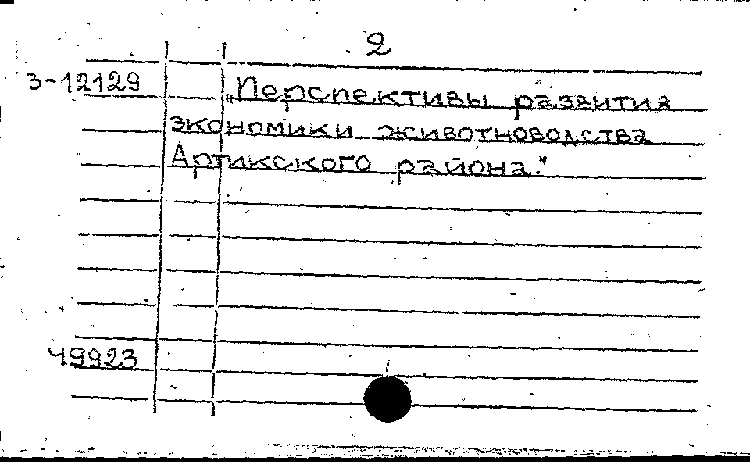 2
3-12129
„Перспективы развития
экономики животноводства
Артикского района."
49923